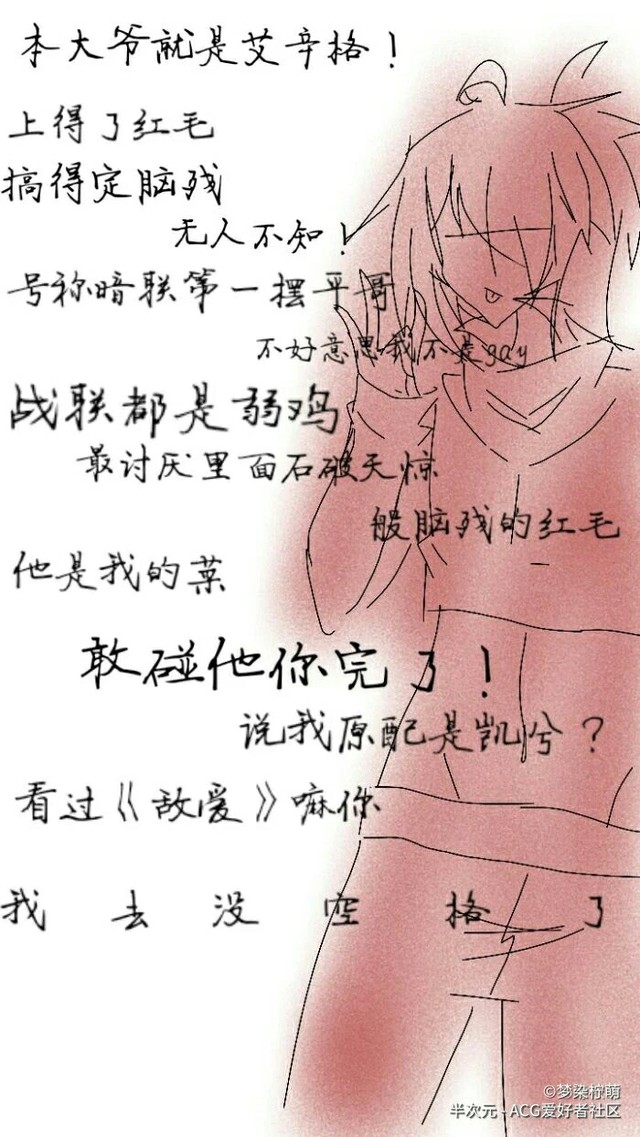 本大爷就是艾辛格！
上得了红毛
搞得定脑残
无人不知！
号称暗联第一摆平哥
不好意思我不是gay
战联都是弱鸡
最讨厌里面石破天惊
般脑残的红毛
他是我的菜
敢碰他你完了！
说我原配是凯兮？
看过《敌爱》嘛你
我去没空格了
©梦染柠萌
半次元 - ACG爱好者社区